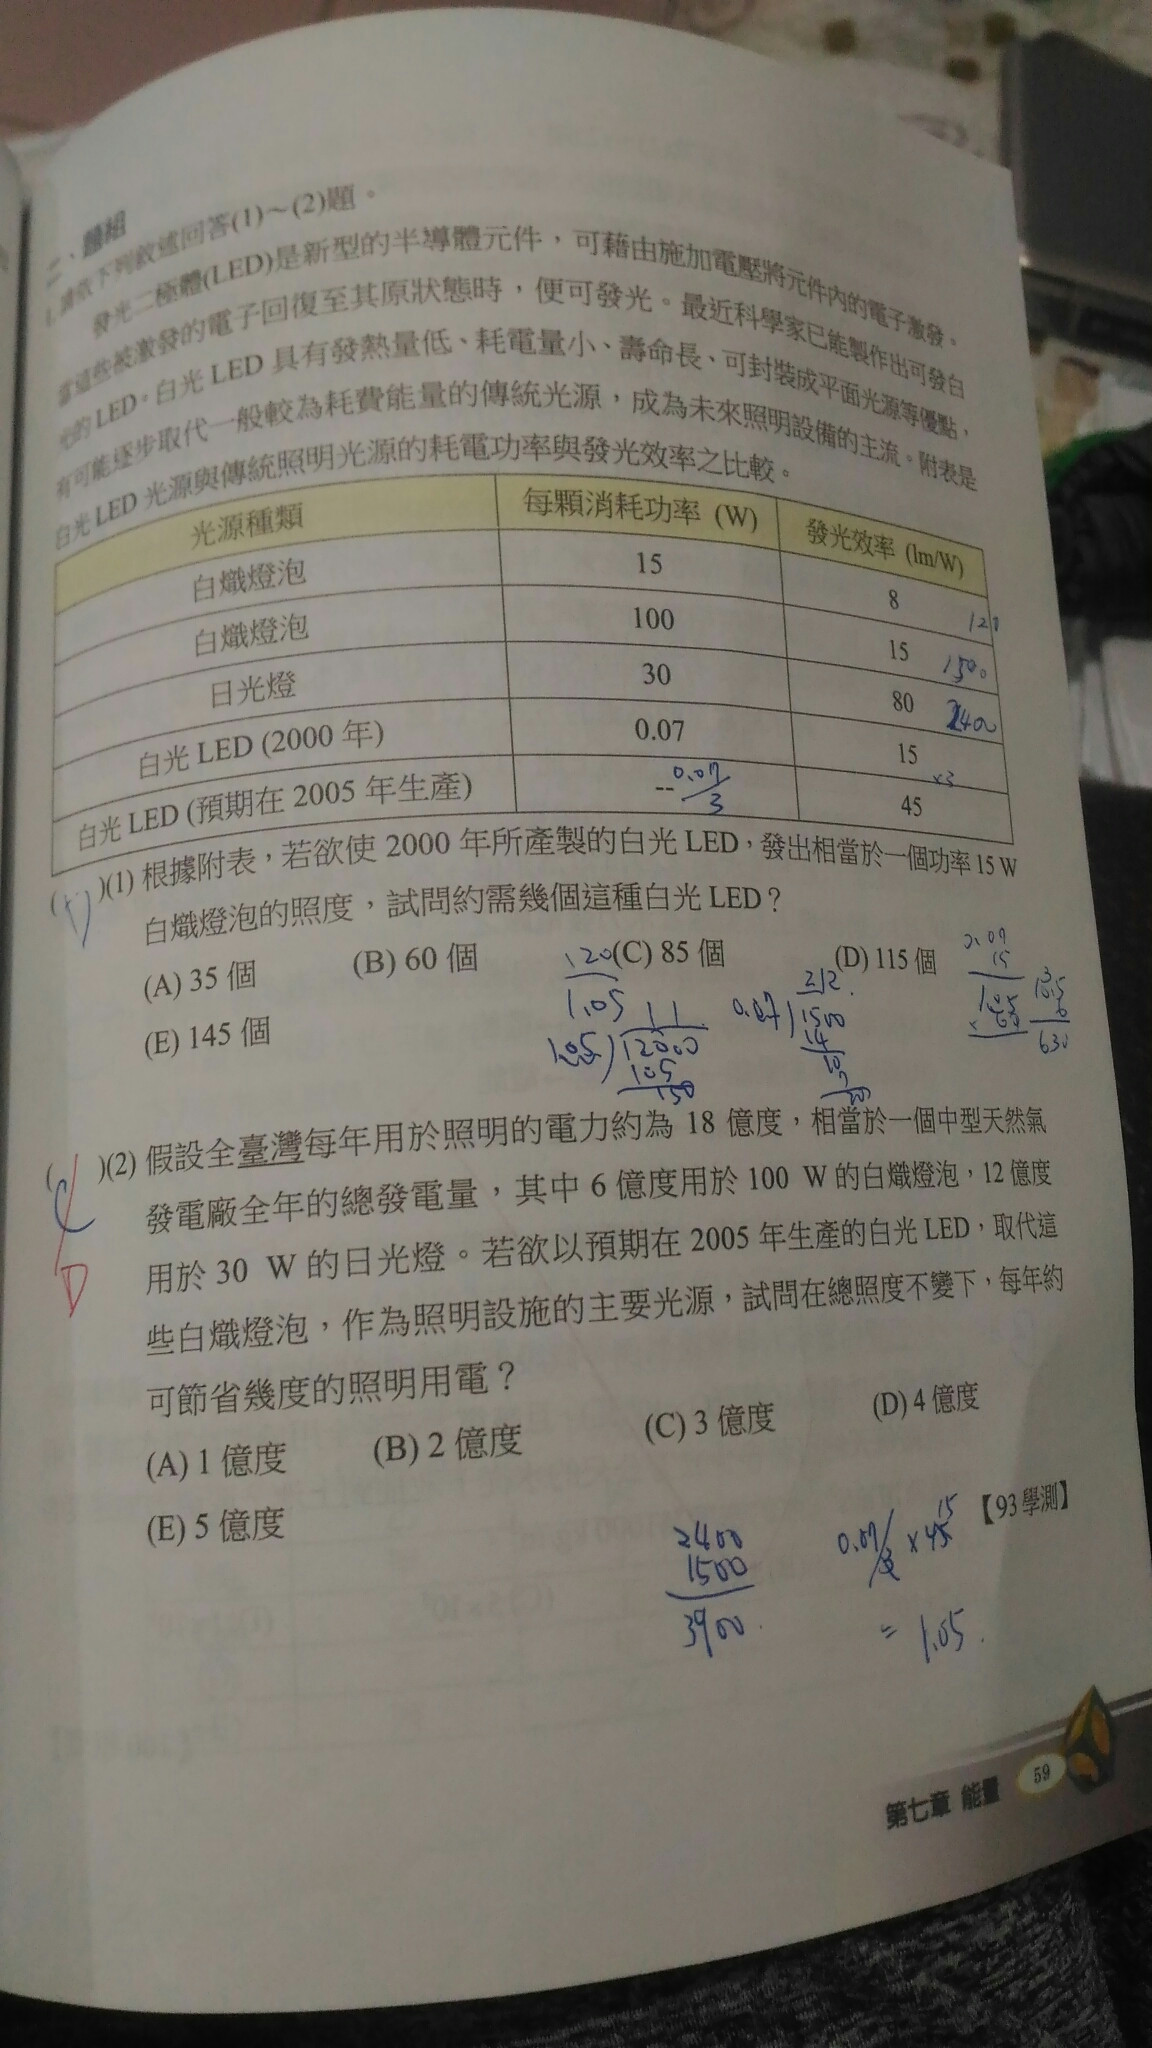 二、題組
1. 請依下列敘述回答(1)～(2)題。
發光二極體(LED)是新型的半導體元件，可藉由施加電壓將元件內的電子激發。
當這些被激發的電子回復至其原狀態時，便可發光。最近科學家已能製作出可發白
光的 LED。白光 LED 具有發熱量低、耗電量小、壽命長、可封裝成平面光源等優點，
有可能逐步取代一般較為耗費能量的傳統光源，成為未來照明設備的主流。附表是
白光 LED 光源與傳統照明光源的耗電功率與發光效率之比較。
光源種類 每顆消耗功率 (W) 發光效率 (lm/W)
白熾燈泡 15 8 120
白熾燈泡 100 15 1500
日光燈 30 80 2400
白光 LED (2000 年) 0.07 15 ×3
白光 LED (預期在 2005 年生產) -- 0.07/3 45
( )(1) 根據附表，若欲使 2000 年所產製的白光 LED，發出相當於一個功率 15 W
白熾燈泡的照度，試問約需幾個這種白光 LED？
(A) 35 個 (B) 60 個 (C) 85 個 (D) 115 個
(E) 145 個
120
1.05
11
105 12000
105
150
212
0.07 1500
14
10
7
15
630
( C D )(2) 假設全臺灣每年用於照明的電力約為 18 億度，相當於一個中型天然氣
發電廠全年的總發電量，其中 6 億度用於 100 W 的白熾燈泡，12 億度
用於 30 W 的日光燈。若欲以預期在 2005 年生產的白光 LED，取代這
些白熾燈泡，作為照明設施的主要光源，試問在總照度不變下，每年約
可節省幾度的照明用電？
(A) 1 億度 (B) 2 億度 (C) 3 億度 (D) 4 億度
(E) 5 億度
【93 學測】
2400
1500
3900
0.07/3 × 45 15
= 1.05
第七章 能量 59